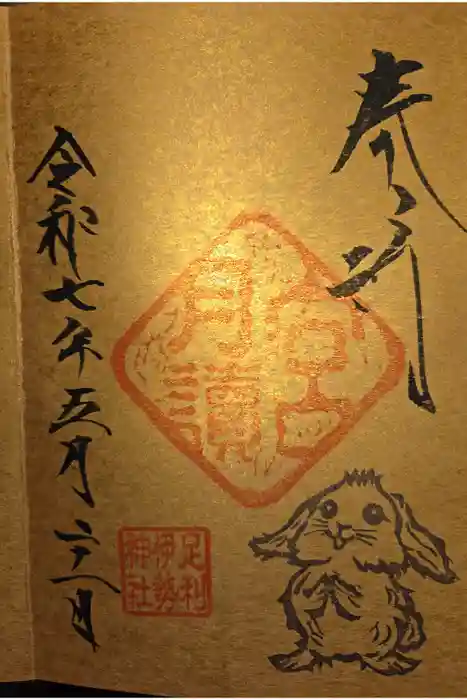 奉拝
令和七年五月二十一日
足利
伊勢
神社